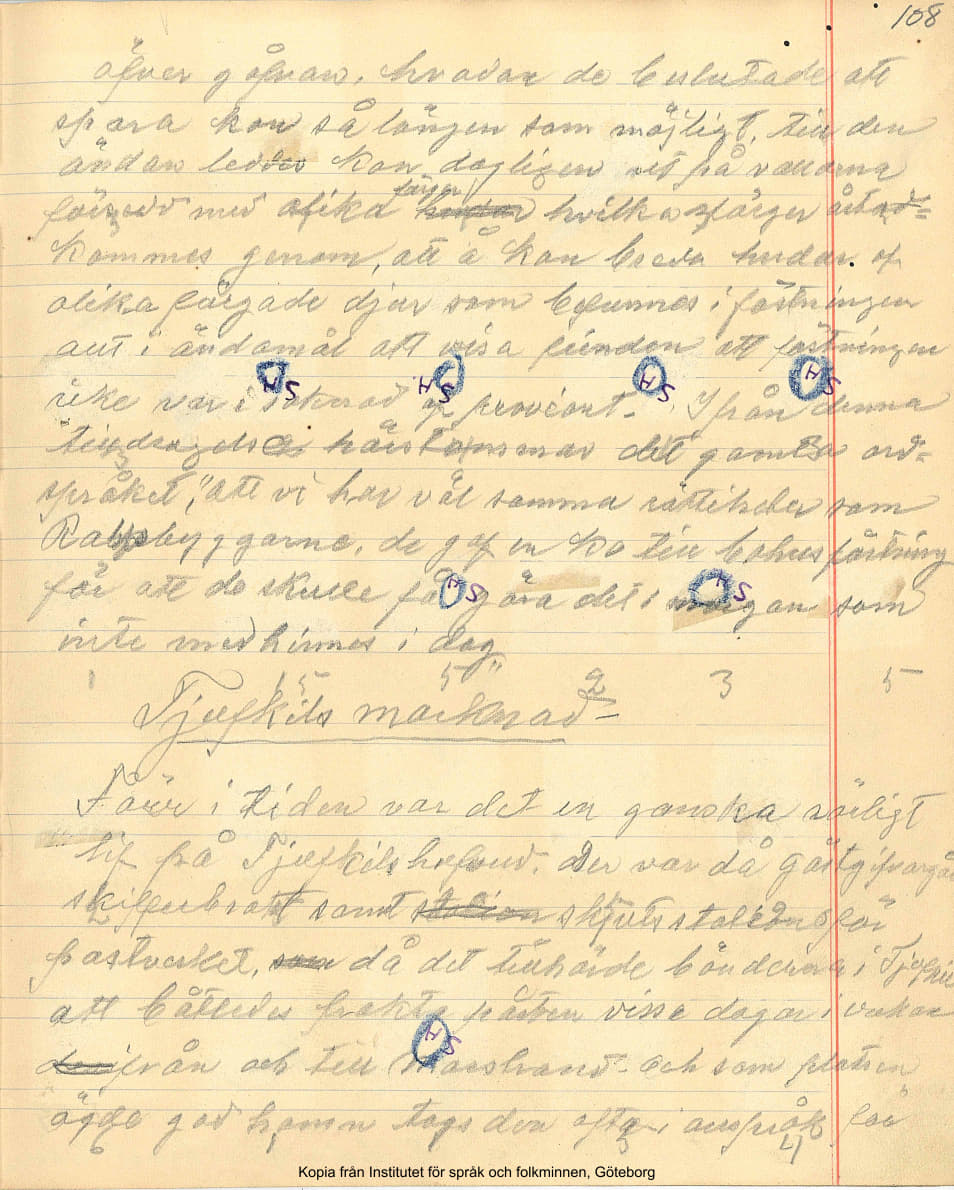 108
öfver gåfvan, hvadan de beslutade att
spara kon så längen som möjligt, till den
ändan leddes kon dagligen ut på vallarna
försedd med olika färger hvilka färger åstad=
kommes genom, att å kon breda hudar af
olika färgade djur som befunnes i fästningen
allt i ändamål att visa fienden att fästningen
icke var i saknad af proviant. Ifrån denna
tilldragelse härstammar det gamla ord=
språket, "att vi har väl samma rättiheter som
byggarne, de gaf en ko till Bohus fästning
för att de skulle få göra det i morgon som
inte medhinnes i dag"
1 5 5 2 3 5
Tjufkils marknad
Förr i tiden var det en ganska rörligt
lif på Tjufkils hufvud. Der var då gästgifvargård
skiljebrott samt skjutsstation för
postverket, då det tillhörde bönderna i Tjufkil
att båtledes frakta posten vissa dagar i veckan
ifrån och till Marstrand. Och som platsen
ägde god hamn togs den ofta i anspråk för
S H
S H
S H
S H
S H
S H
S H
Kopia från Institutet för språk och folkminnen, Göteborg